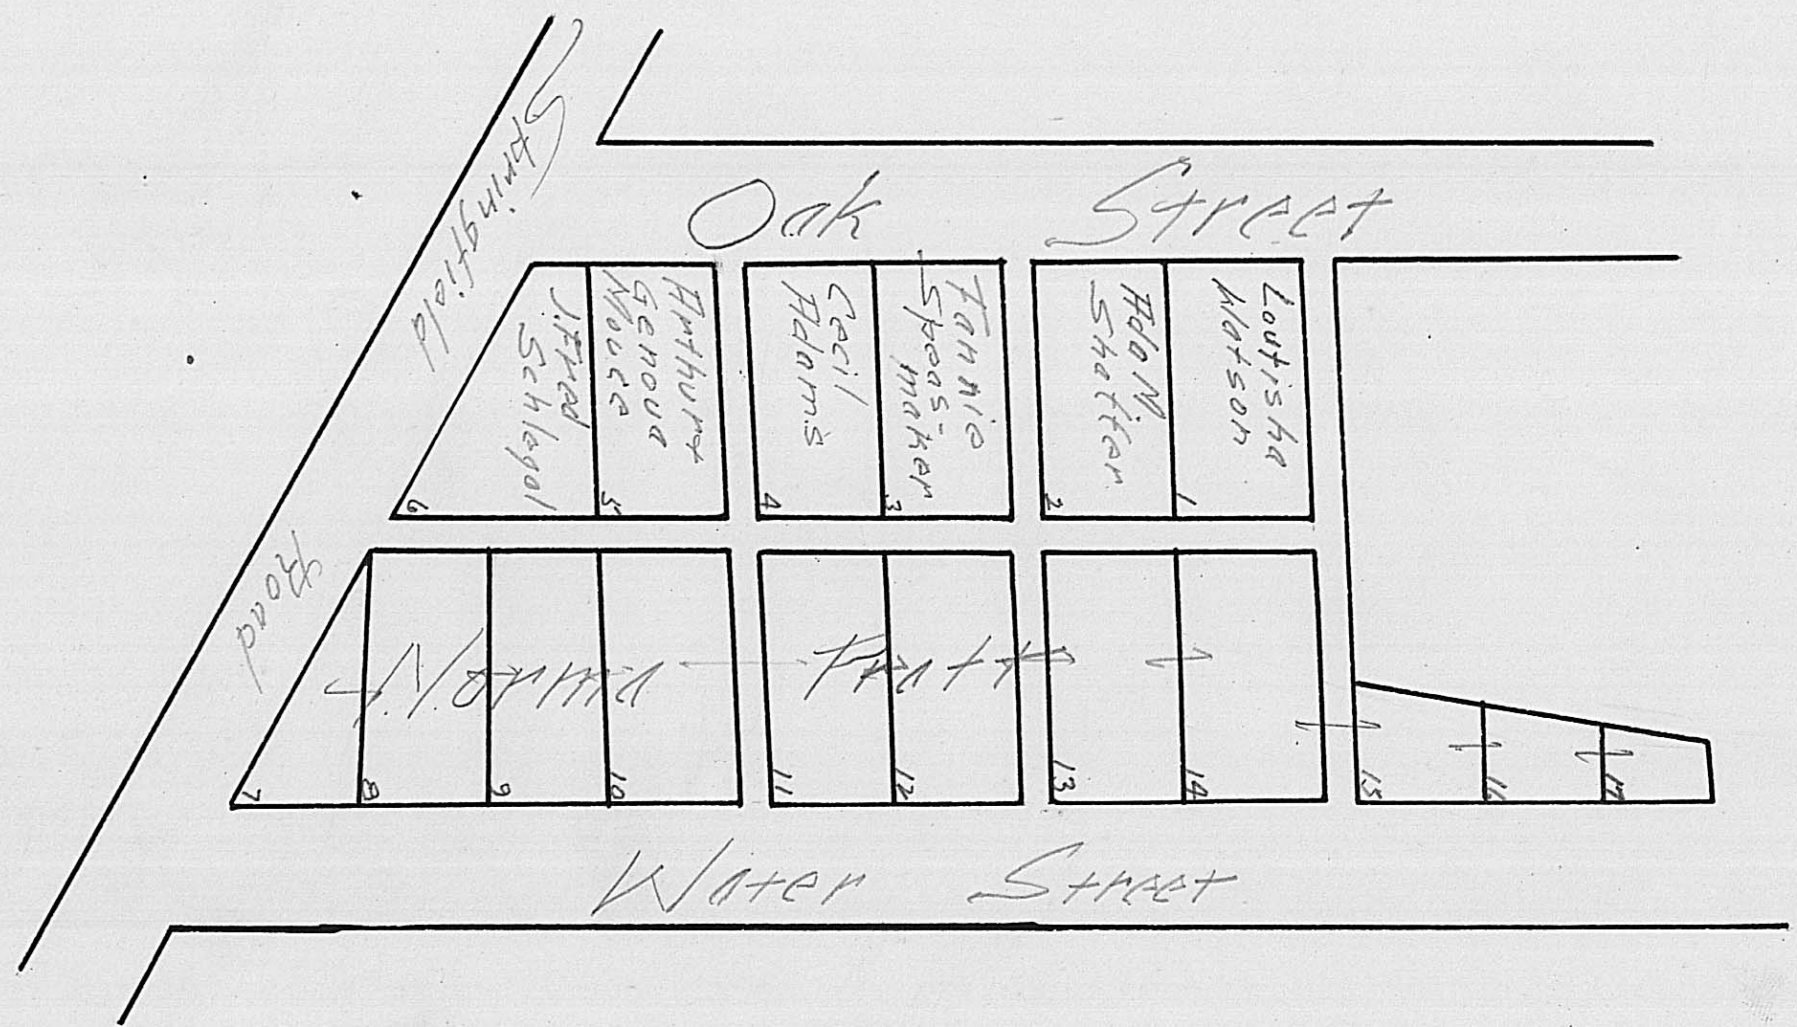 Springfield
Road
Oak Street
J. Fred
Schlegal
6
Arthur +
Genova
5
Cecil
Adams
4
Fannie
Spoos-
maker
3
Ada N.
Shaffer
2
Loutisha
Watson
1
Norma Pratt
7
8
9
10
11
12
13
14
15
16
17
Water Street